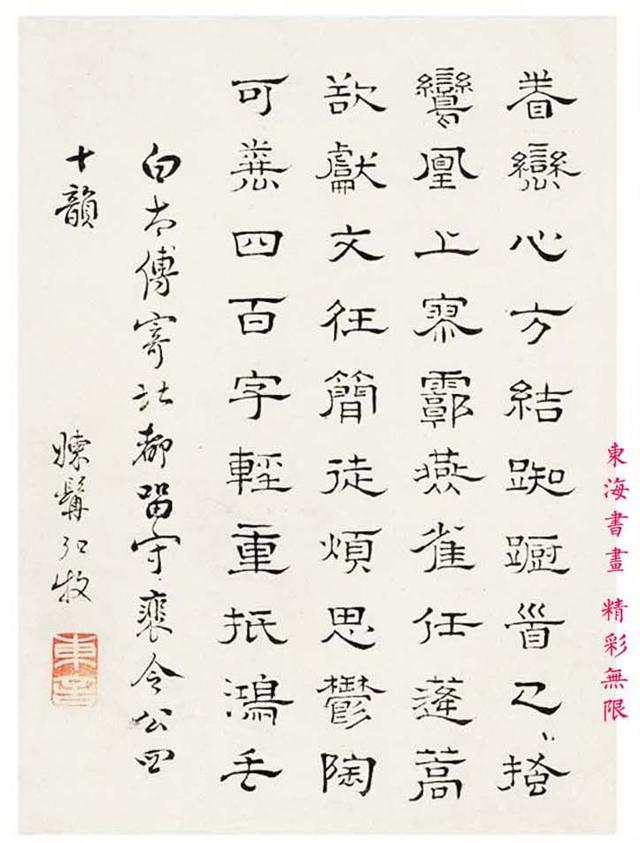 東海書畫 精彩無限
眷戀心方結踟蹰首已搔
鸞凰上寥霩燕雀任蓬蒿
欲獻文狂簡徒煩思鬱陶
可憐四百字輕重抵鴻毛
白太傅寄北都留守裴令公四
十韻
髯弘牧